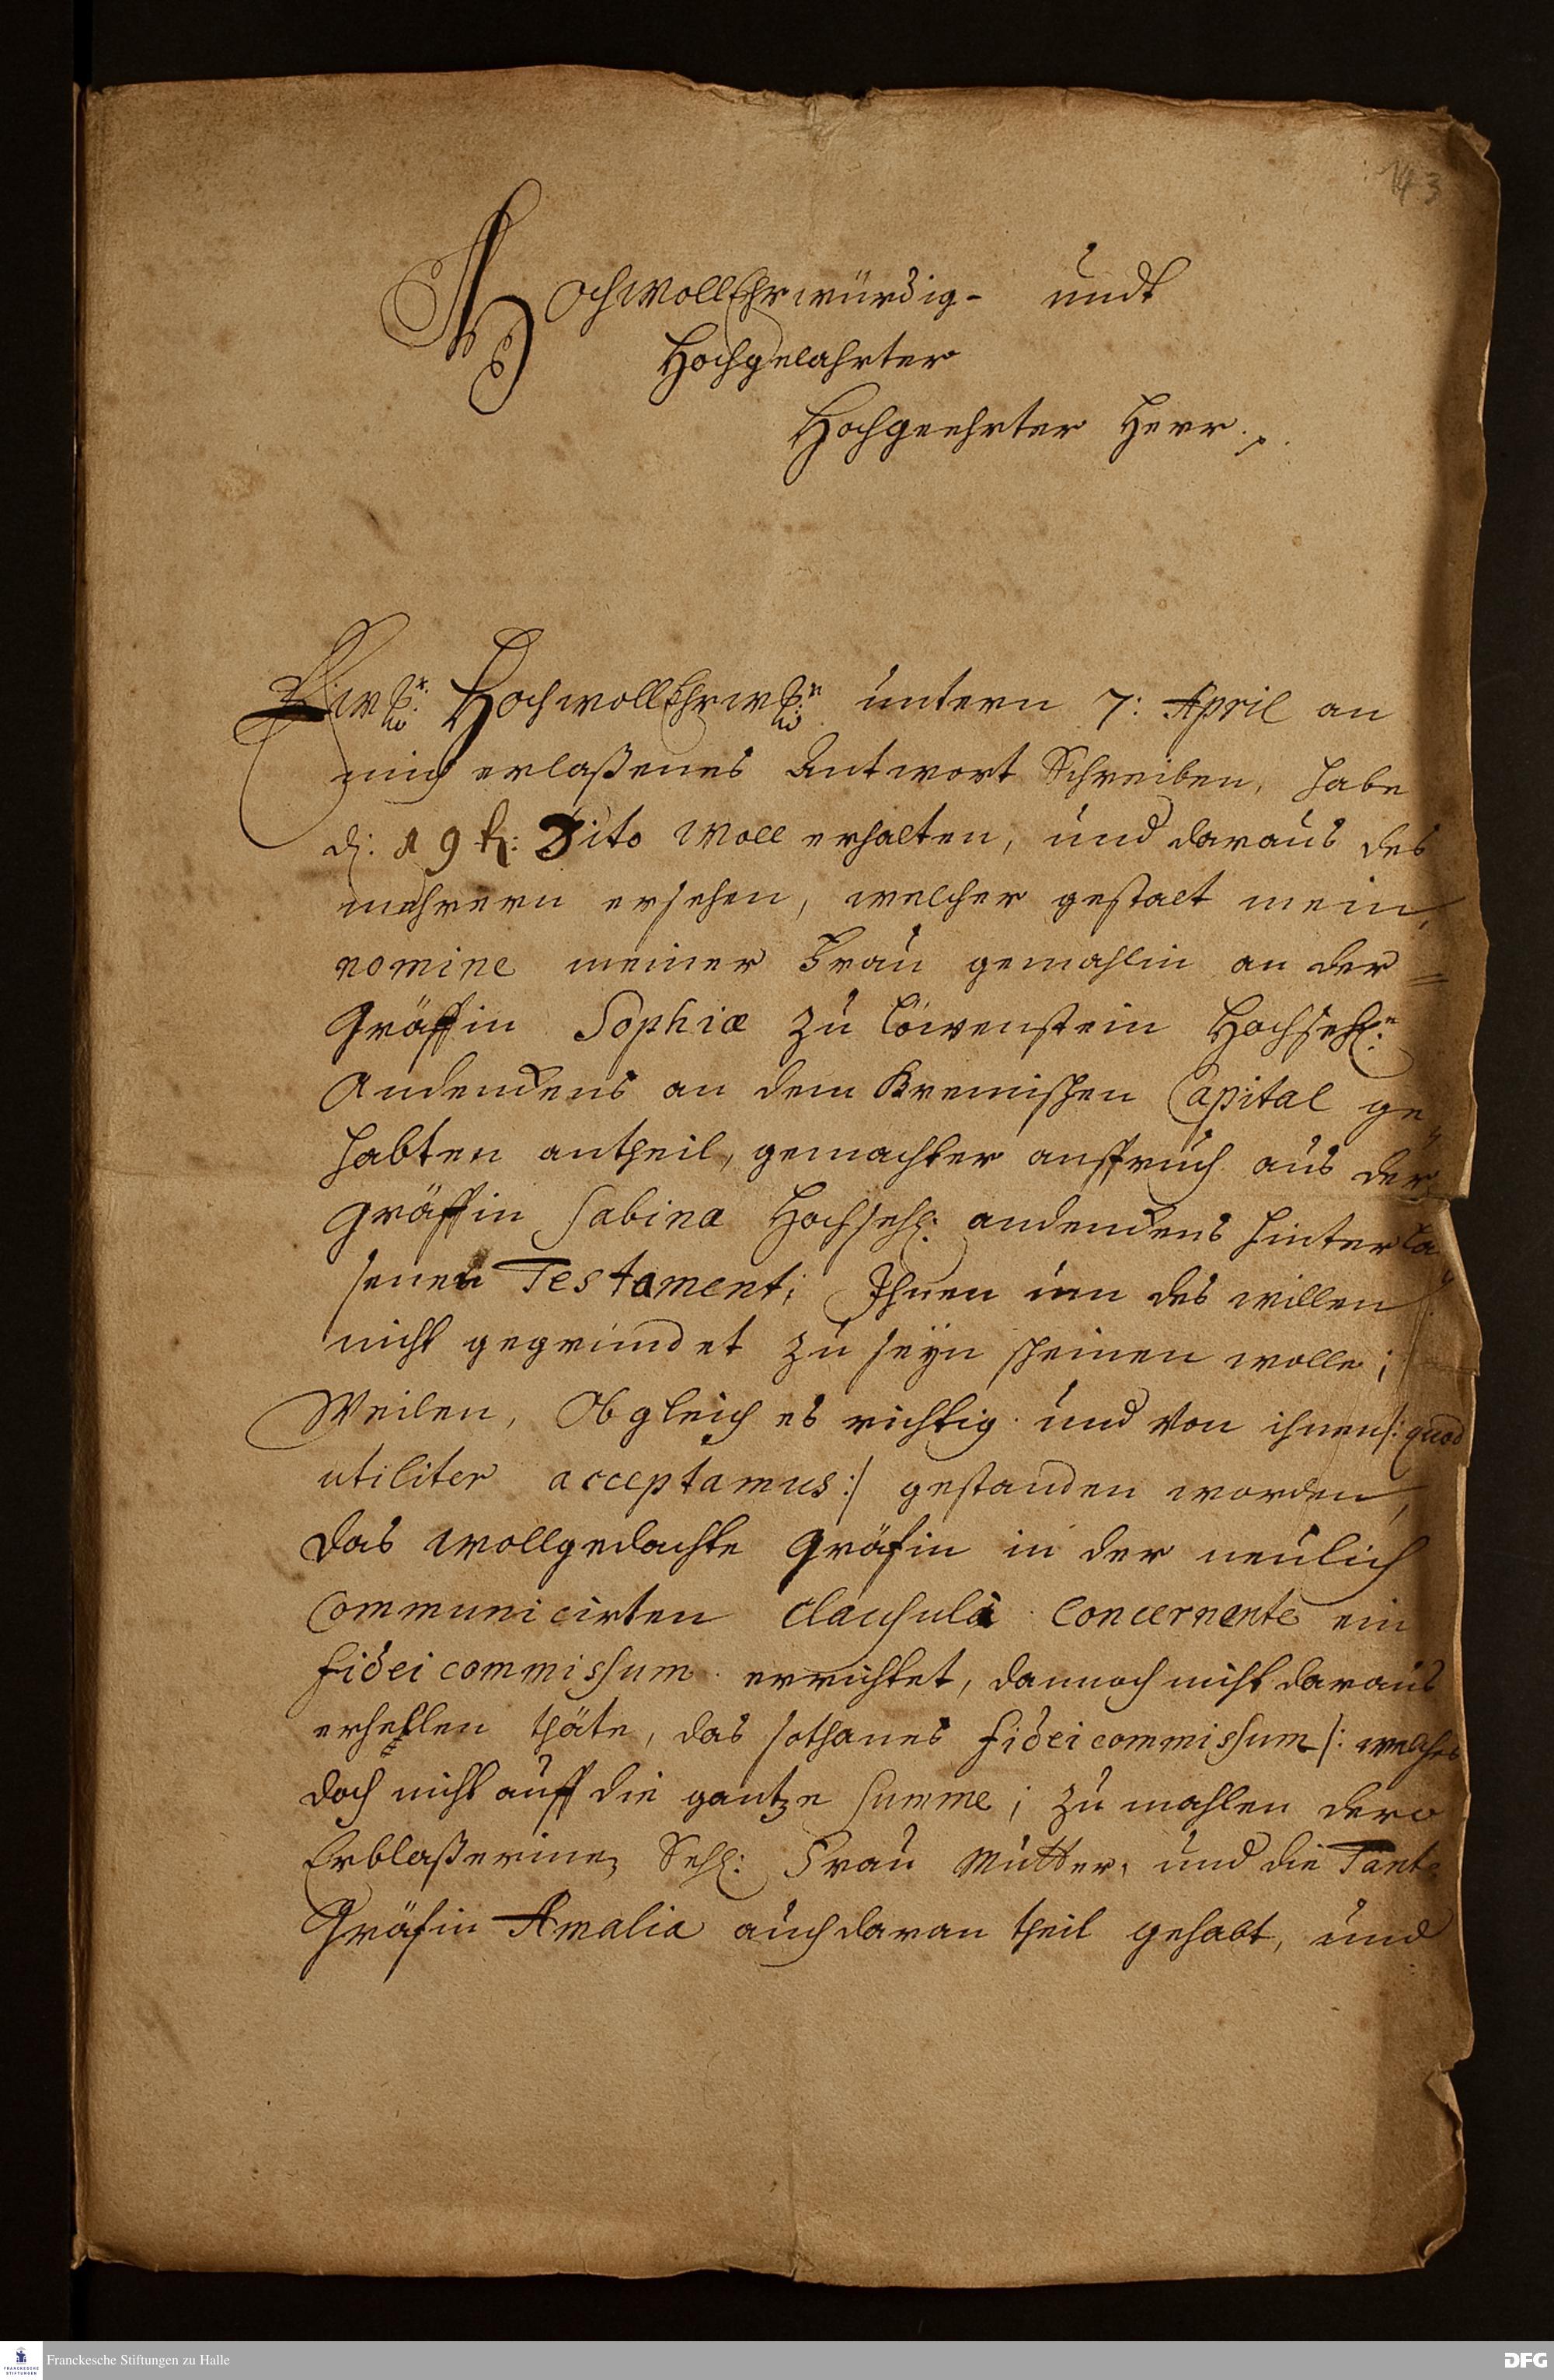 143
HochWollEhrwürdig- undt
Hochgelahrter
Hochgeehrter Herr.
HochwollEhrw: untern 7: April an
mich erlaßenes Antwort Schreiben, habe
d: 19 t: Dito woll erhalten, und daraus des
mehrern ersehen, welcher gestalt mein,
nomine meiner Frau gemahlin an der
Gräffin Sophiæ zu Löwenstein Hochsehl:n
Andenckens an dem Bremischen Capital ge
habten antheil, gemachter anspruch aus der
Gräffin Sabina Hochsehl: andenckens hinterla
senen Testament; Ihnen um des willen
nicht gegründet zu seyn scheinen wolle;
Weilen, Obgleich es richtig und von ihnen /: quod
utiliter acceptamus :/ gestanden worden,
das wollgedachte Gräfin in der neulich
Communicirten Clausula Concernente ein
fidei commissum errichtet, dannoch nicht daraus
erhellen thäte, das sothanes fidei commissum /: welches
doch nicht auff die gantze Summe; zu mahlen dero
Erblaßerinn Sehl: Frau Mutter, und die Tante
Gräfin Amalia auch daran theil gehabt, und
Franckesche Stiftungen zu Halle
FRANCKESCHE
STIFTUNGEN
DFG